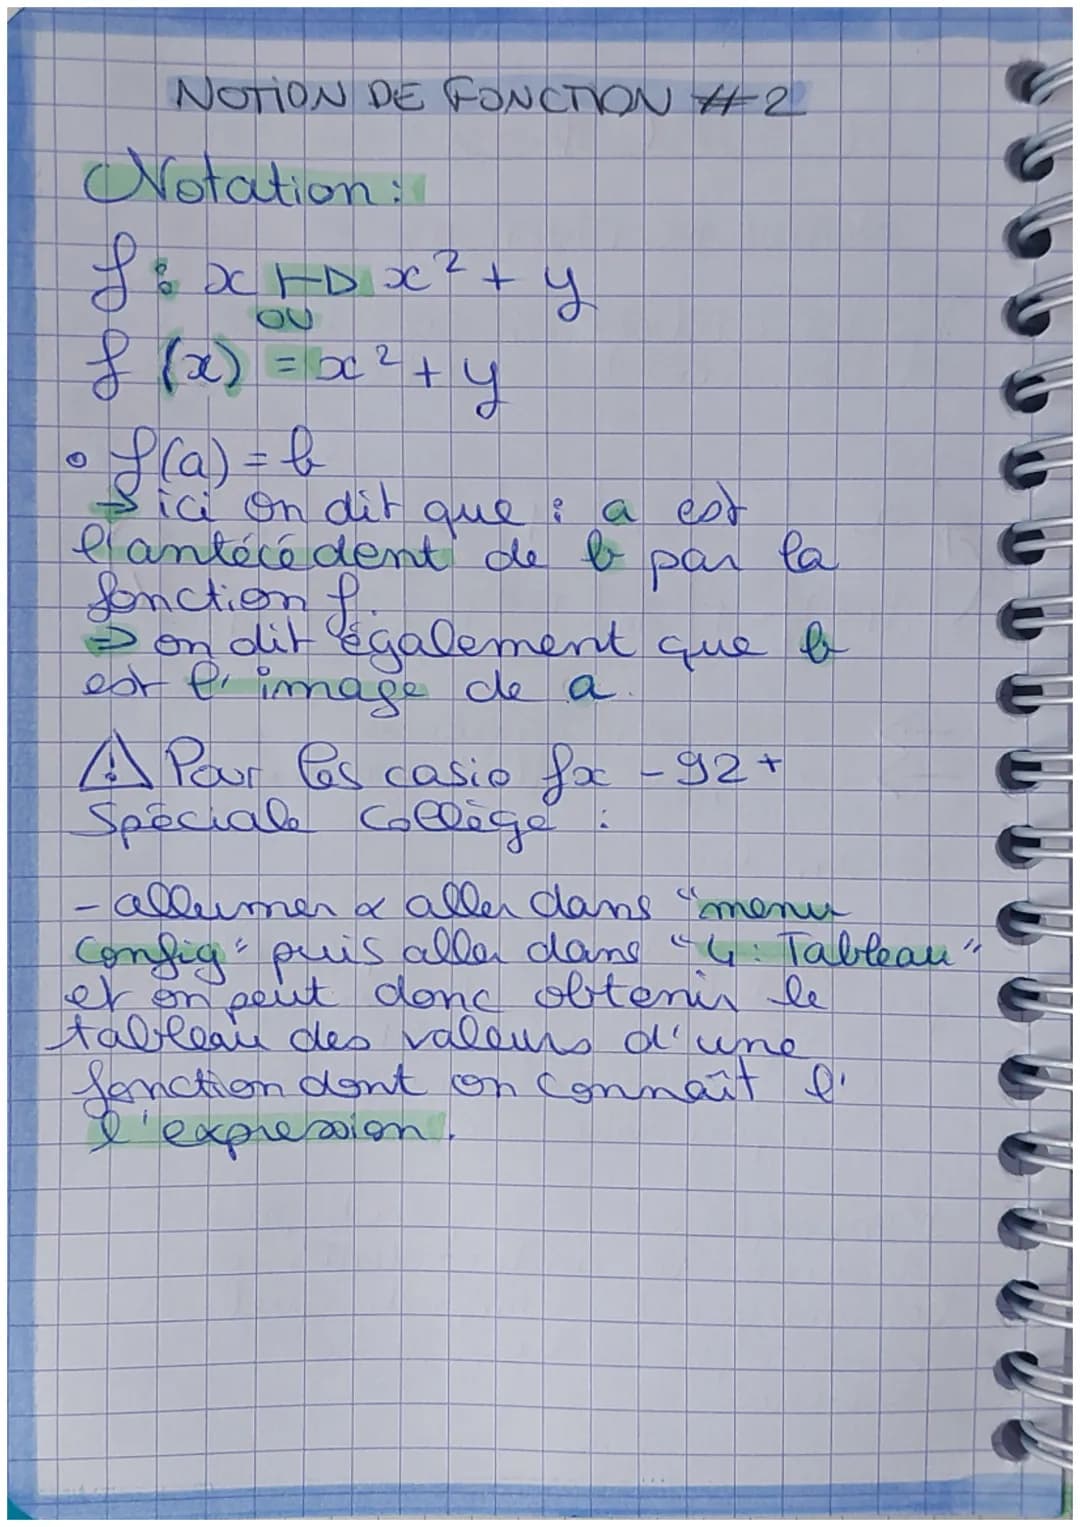 NOTION DE FONCTION #2
Notation :
f : x ↦ x² + y
ou
f (x) = x² + y
• f(a) = b
→ ici on dit que : a est
l'antécédent de b par la
fonction f.
⇒ on dit également que b
est l'image de a.
⚠ Pour les casio fx - 92+
Spéciale Collège :
- allumer & aller dans "menu
Config" puis aller dans "4 : Tableau"
et on peut donc obtenir le
tableau des valeurs d'une
fonction dont on connaît l'
l'expression.